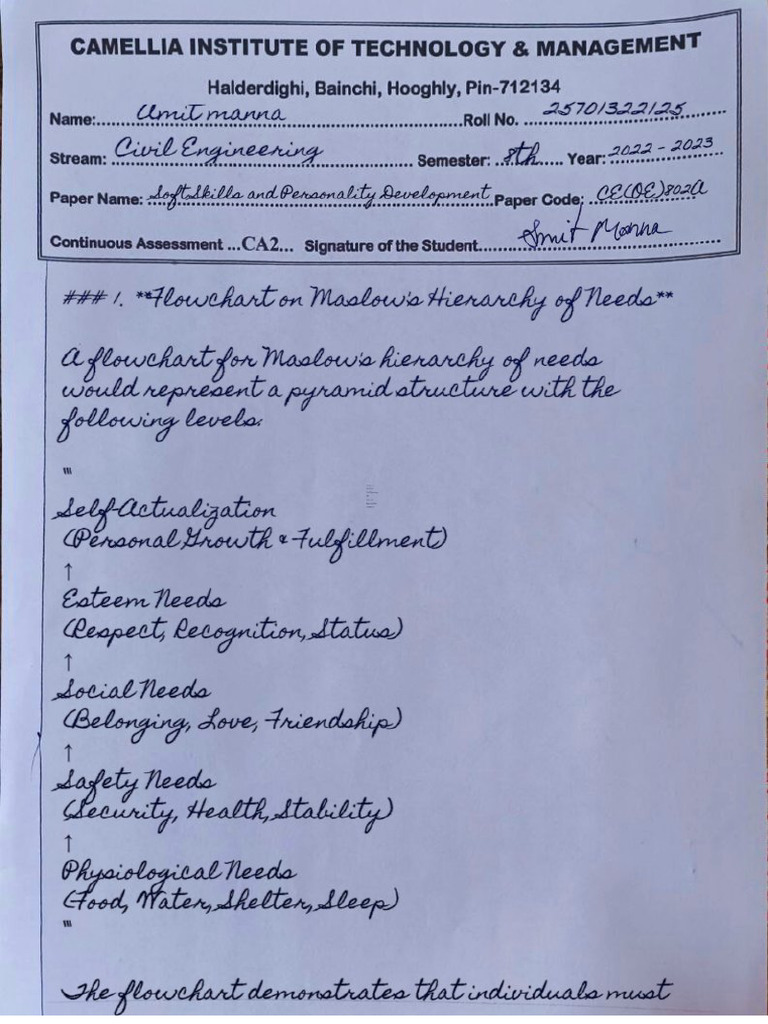 CAMELLIA INSTITUTE OF TECHNOLOGY & MANAGEMENT
Halderdighi, Bainchi, Hooghly, Pin-712134
Name:......Umit manna......Roll No. 25701322125
Stream: Civil Engineering Semester: 8th Year: 2022 - 2023
Paper Name: Soft Skills and Personality Development Paper Code: CE(OE)802A
Continuous Assessment ...CA2... Signature of the Student......Smit Manna
### 1. **Flowchart on Maslow's Hierarchy of Needs**
A flowchart for Maslow's hierarchy of needs
would represent a pyramid structure with the
following levels:
```
Self-Actualization
(Personal Growth & Fulfillment)
↑
Esteem Needs
(Respect, Recognition, Status)
↑
Social Needs
(Belonging, Love, Friendship)
↑
Safety Needs
(Security, Health, Stability)
↑
Physiological Needs
(Food, Water, Shelter, Sleep)
```
The flowchart demonstrates that individuals must